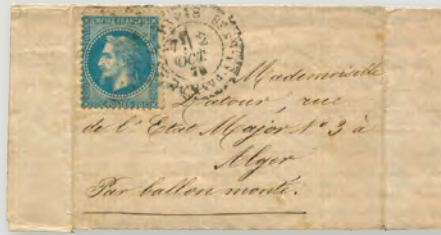 EMPIRE FRANÇAIS
OCT
70
Mademoiselle
Latour, rue
de l'Etat Major No 3 à
Alger
Par ballon monté.